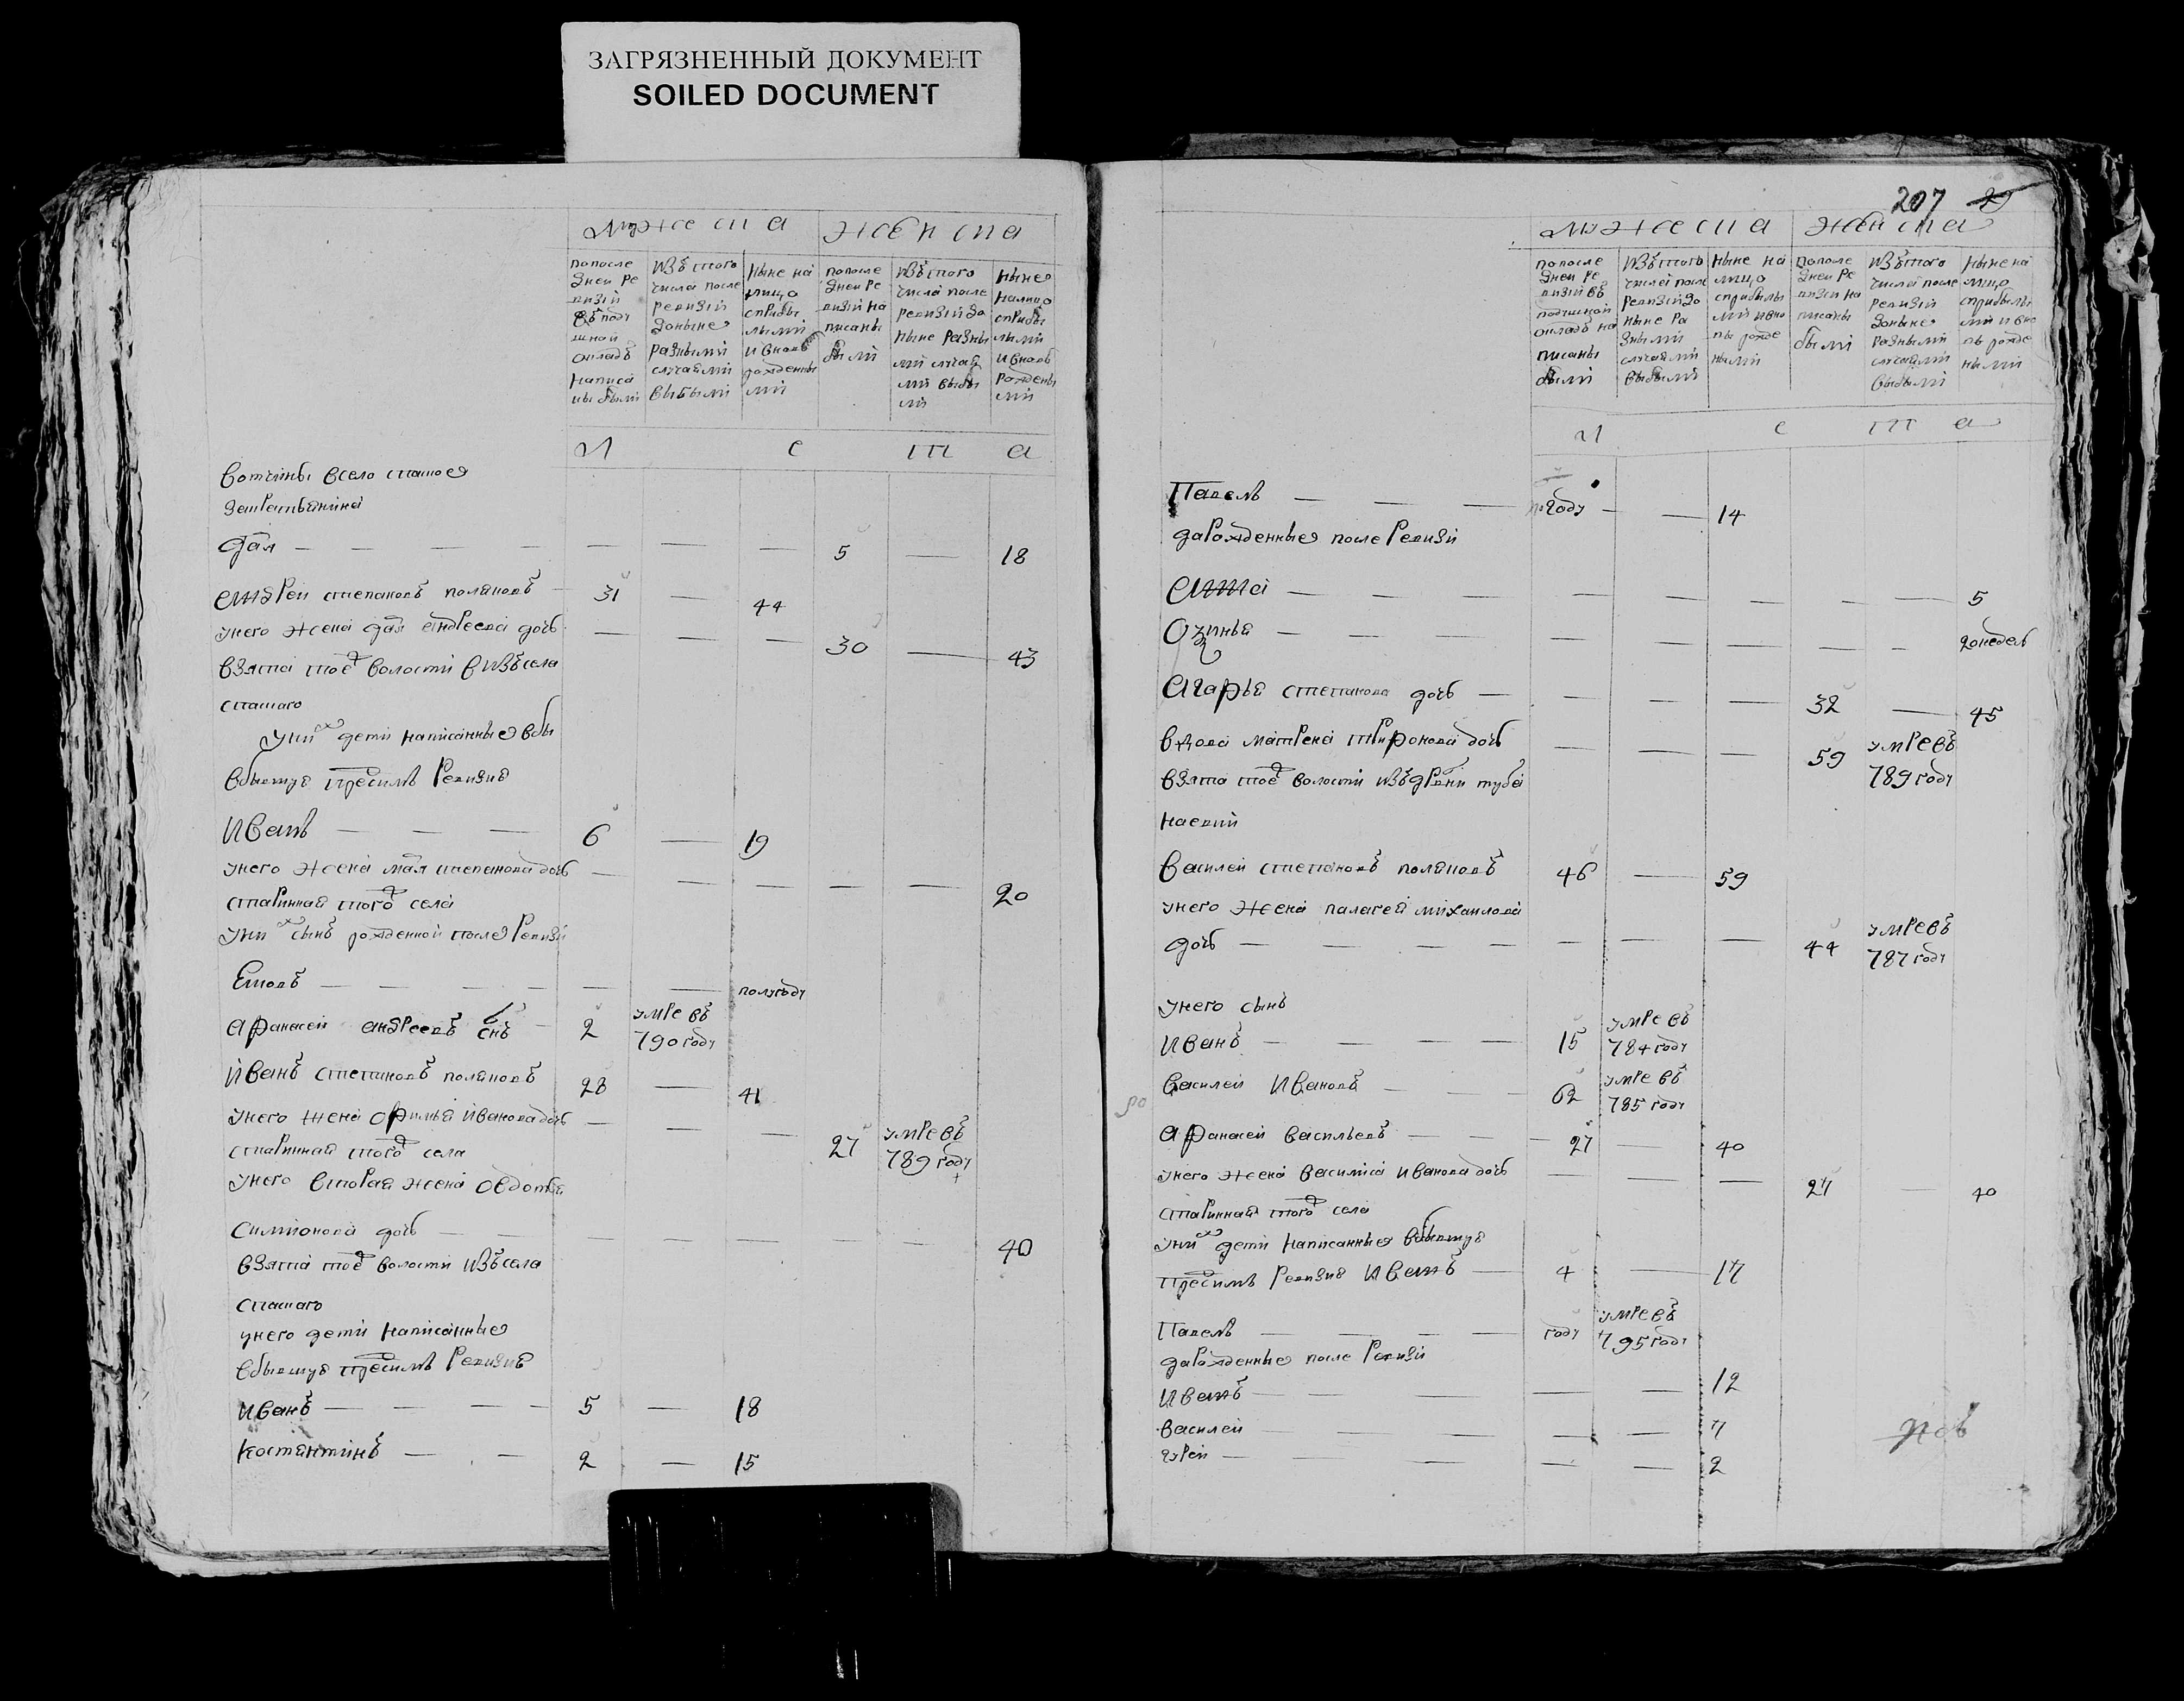 ЗАГРЯЗНЕННЫЙ ДОКУМЕНТ
SOILED DOCUMENT
мужеска женска
попоследней ревизии въ подушной окладъ написаны были
изъ того числа после ревизии доныне разными случаями выбыли
ныне на лицо с прибылыми и вновь рожденными
попоследней ревизии написаны были
изъ того числа после ревизии до ныне разными случаями выбыли
ныне налицо с прибылыми и вновь рожденными
Л е т а
вотчины всело спаское
за крестьянина
— — — — 5 — 18
андреи степановъ поляковъ 31 — 44
унего жена андреева дочь — — — 30 — 43
взята тоеж волости изъ села
спаскаго
уних дети написанные
вбывшую пред сим ревизию
Иванъ — — — 6 — 19
унего жена степанова дочь — — — — — 20
старинная того ж села
уних сынъ рожденной после ревизии
— — — — полугоду
афанасеи андреевъ снъ 2 умре въ 790 году
Иванъ степановъ поляковъ 28 — 41
унего жена офимья иванова дочь — — — 27 умре въ 789 году
старинная того ж села
унего вторая жена овдотья
симионова дочь — — — — — — 40
взята тоеж волости изъ села
спаскаго
унего дети написанные
вбывшую пред сим ревизию
иванъ — — — — 5 — 18
костянтинъ — — 2 — 15
207 29
мужеска женска
попоследней ревизии въ подушной окладъ написаны были
изъ того числа после ревизии до ныне разными случаями выбыли
ныне на лицо с прибылыми и вновь рожденными
попоследней ревизии написаны были
изъ того числа после ревизии доныне разными случаями выбыли
ныне на лицо с прибылыми и вновь рожденными
Л е т а
Павелъ — — — полгоду — — 14
да рожденные после ревизии
Анна — — — — — — — — — 5
— — — — — — — — — недель
Агафья степанова дочь — — — — 32 — 45
вдова матрена дочь — — — 59 умре въ 789 году
взята тоеж волости изъ дрвни
василеи степановъ поляковъ 46 — 59
унего жена палагея михаилова
дочь — — — — — — — 44 умре въ 787 году
унего сынъ
иванъ — — — — 15 умре въ 784 году
василеи ивановъ — — 62 умре въ 785 году
афанасеи васильевъ — — — 27 — 40
унего жена василиса иванова дочь — — — 27 — 40
старинная того ж села
уних дети написанные вбывшую
пред сим ревизию иванъ — 4 — 17
Павелъ — — — — году умре въ 795 году
да рожденные после ревизии
иванъ — — — — — 12
василеи — — — — — 7
гуреи — — — — — 2